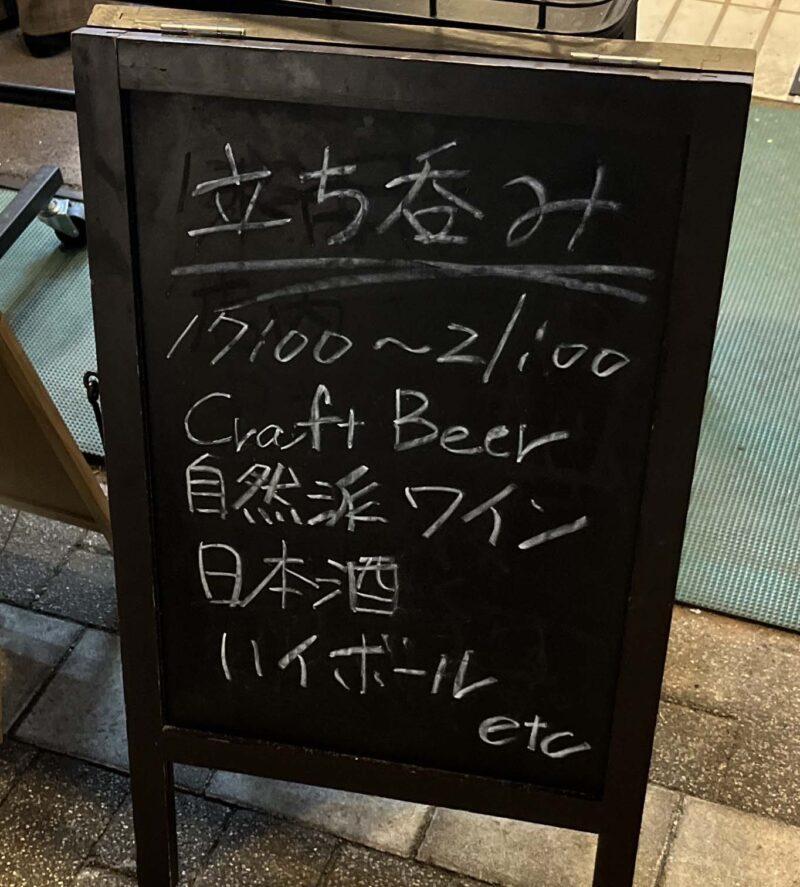 立ち呑み
17:00〜21:00
Craft Beer
自然派ワイン
日本酒
ハイボール
etc